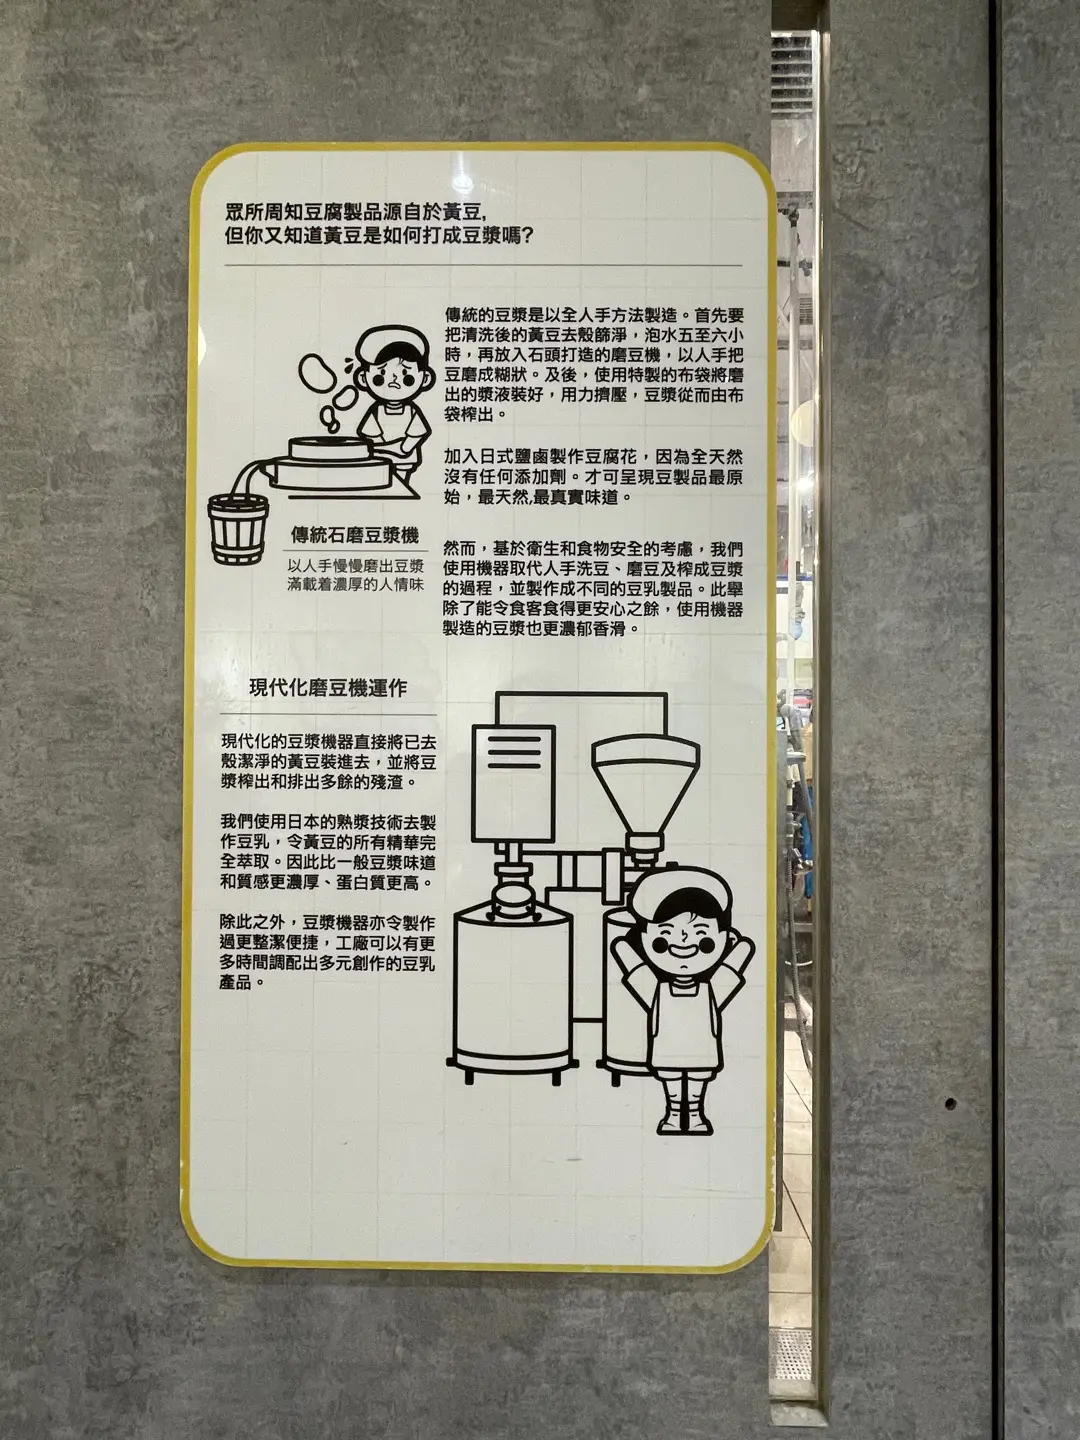 眾所周知豆腐製品源自於黃豆,
但你又知道黃豆是如何打成豆漿嗎?
傳統的豆漿是以全人手方法製造。首先要
把清洗後的黃豆去殼篩淨，泡水五至六小
時，再放入石頭打造的磨豆機，以人手把
豆磨成糊狀。及後，使用特製的布袋將磨
出的漿液裝好，用力擠壓，豆漿從而由布
袋榨出。
加入日式鹽鹵製作豆腐花，因為全天然
沒有任何添加劑。才可呈現豆製品最原
始，最天然,最真實味道。
傳統石磨豆漿機
以人手慢慢磨出豆漿
滿載着濃厚的人情味
然而，基於衛生和食物安全的考慮，我們
使用機器取代人手洗豆、磨豆及榨成豆漿
的過程，並製作成不同的豆乳製品。此舉
除了能令食客食得更安心之餘，使用機器
製造的豆漿也更濃郁香滑。
現代化磨豆機運作
現代化的豆漿機器直接將已去
殼潔淨的黃豆裝進去，並將豆
漿榨出和排出多餘的殘渣。
我們使用日本的熟漿技術去製
作豆乳，令黃豆的所有精華完
全萃取。因此比一般豆漿味道
和質感更濃厚、蛋白質更高。
除此之外，豆漿機器亦令製作
過更整潔便捷，工廠可以有更
多時間調配出多元創作的豆乳
產品。